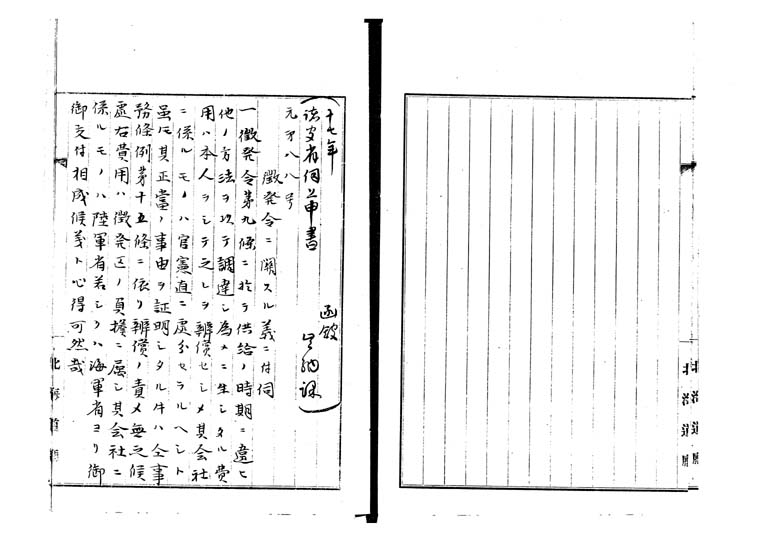 十七年
諸官省伺上申書
函館
出納課
元第八八号
徴発令ニ関スル義ニ付伺
一徴発令第九條ニ於テ供給ノ時期ニ違ヒ
他ノ方法ヲ以テ調達シ為メニ生シタル費
用ハ本人ヲシテ之レヲ辨償セシメ其会社
ニ係ルモノハ官憲直ニ處分セラルヘシト
雖モ其正當ノ事由ヲ証明シタル片ハ仝事
務條例第十五條ニ依リ辨償ノ責メ無之候
處右費用ハ徴発区ノ負擔ニ属シ其会社ニ
係ルモノハ陸軍省若シクハ海軍省ヨリ御
御交付相成候義ト心得可然哉
北海道廳
北海道廳
北海道廳